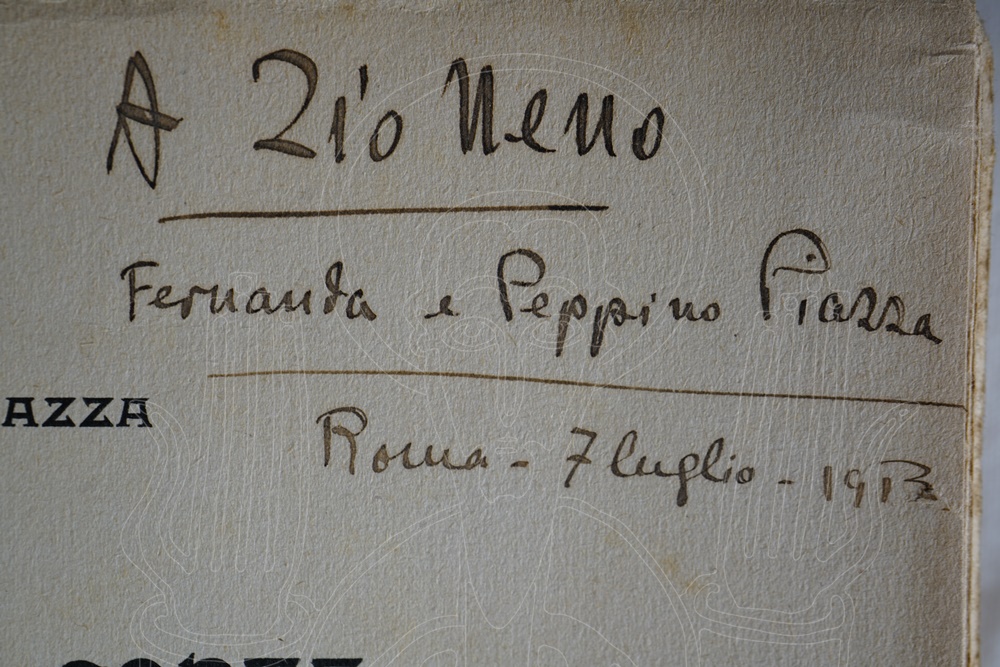 A Zio Neno
Fernanda e Peppino Piazza
AZZA
Roma - 7 luglio - 1913